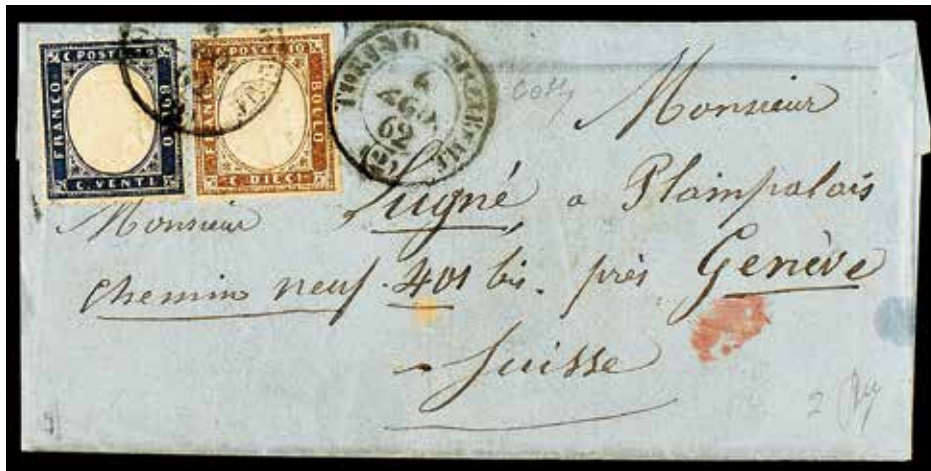 C. POSTE 20
FRANCO
BOLLO
C. VENTI
C. POSTE 10
FRANCO
BOLLO
C. DIECI
TORINO
4
AGO
62
Monsieur
Monsieur Lugné, a Plainpalais
chemin neuf. 401 bis. près Genève
Suisse
2